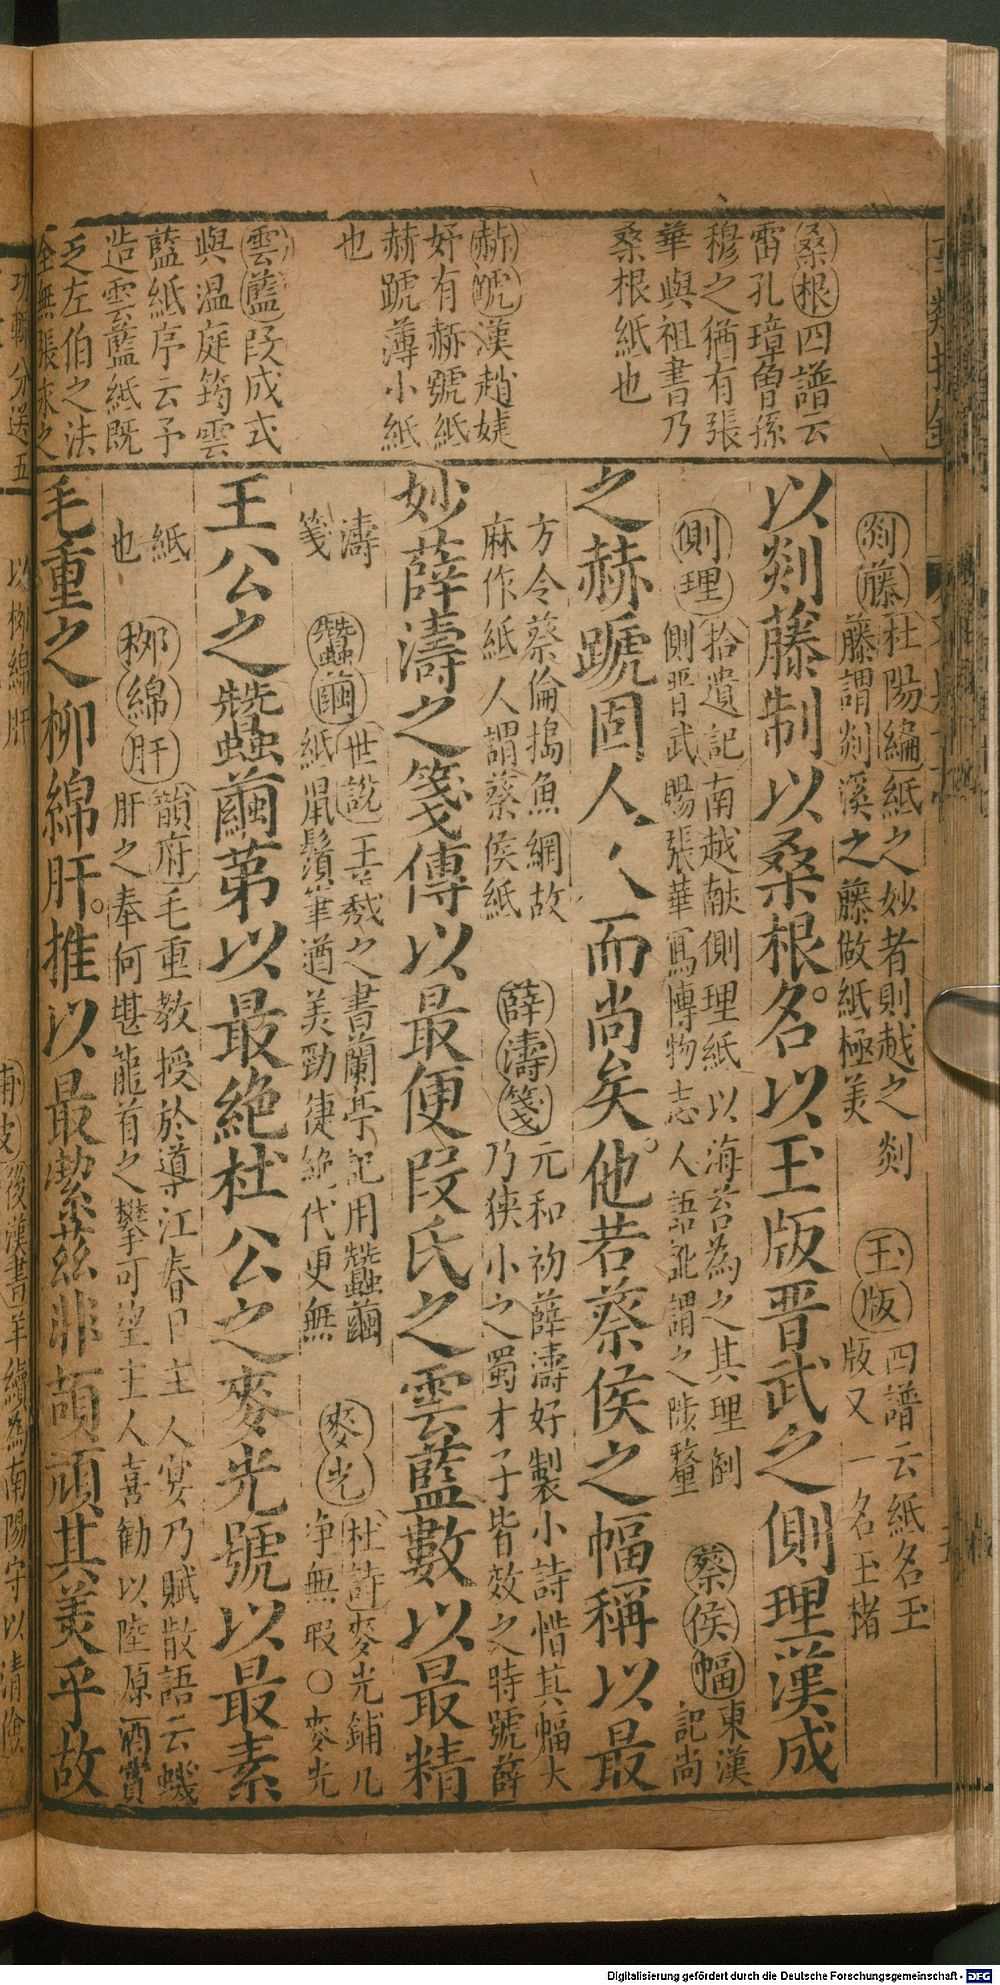 桑根四譜云
雷孔璋魯孫
穆之猶有張
華與祖書乃
桑根紙也
赫蹏漢趙婕
妤有赫號紙
赫蹏薄小紙
也
雲藍段成式
與温庭筠雲
藍紙序云予
造雲藍紙既
乏左伯之法
全無張永之
剡藤杜陽編紙之妙者則越之剡
藤謂剡溪之藤做紙極美
玉版四譜云紙名玉
版又一名玉楮
以剡藤制以桑根名。以玉版晋武之側理漢成
側理拾遺記南越献側理紙以海苔為之其理倒
側晋武賜張華寫博物志人語訛謂之陟釐
蔡侯幅東漢
記尚
之赫蹏固人人而尚矣。他若蔡侯之幅稱以最
方令蔡倫搗魚網故
麻作紙人謂蔡侯紙
薛濤箋元和初薛濤好製小詩惜其幅大
乃狭小之蜀才子皆效之時號薛
妙薛濤之箋傳以最便段氏之雲藍數以最精
濤
箋
蠶繭世説王羲之書蘭亭記用蠶繭
紙鼠鬚筆遒美勁徤絶代更無
麥光杜詩麥光鋪几
净無瑕○麥光
王公之蠶繭苐以最絶杜公之麥光號以最素
紙
也
柳綿肝韻府毛重教授於導江春日主人宴乃賦散語云蟣
肝之奉何堪龍首之攀可望主人喜勸以陸原酒賞
毛重之柳綿肝。推以最潔茲非頡頏其美乎故
功輙分送五
以柳綿肝
後漢書羊續為南陽守以清儉
Digitalisierung gefördert durch die Deutsche Forschungsgemeinschaft - DFG